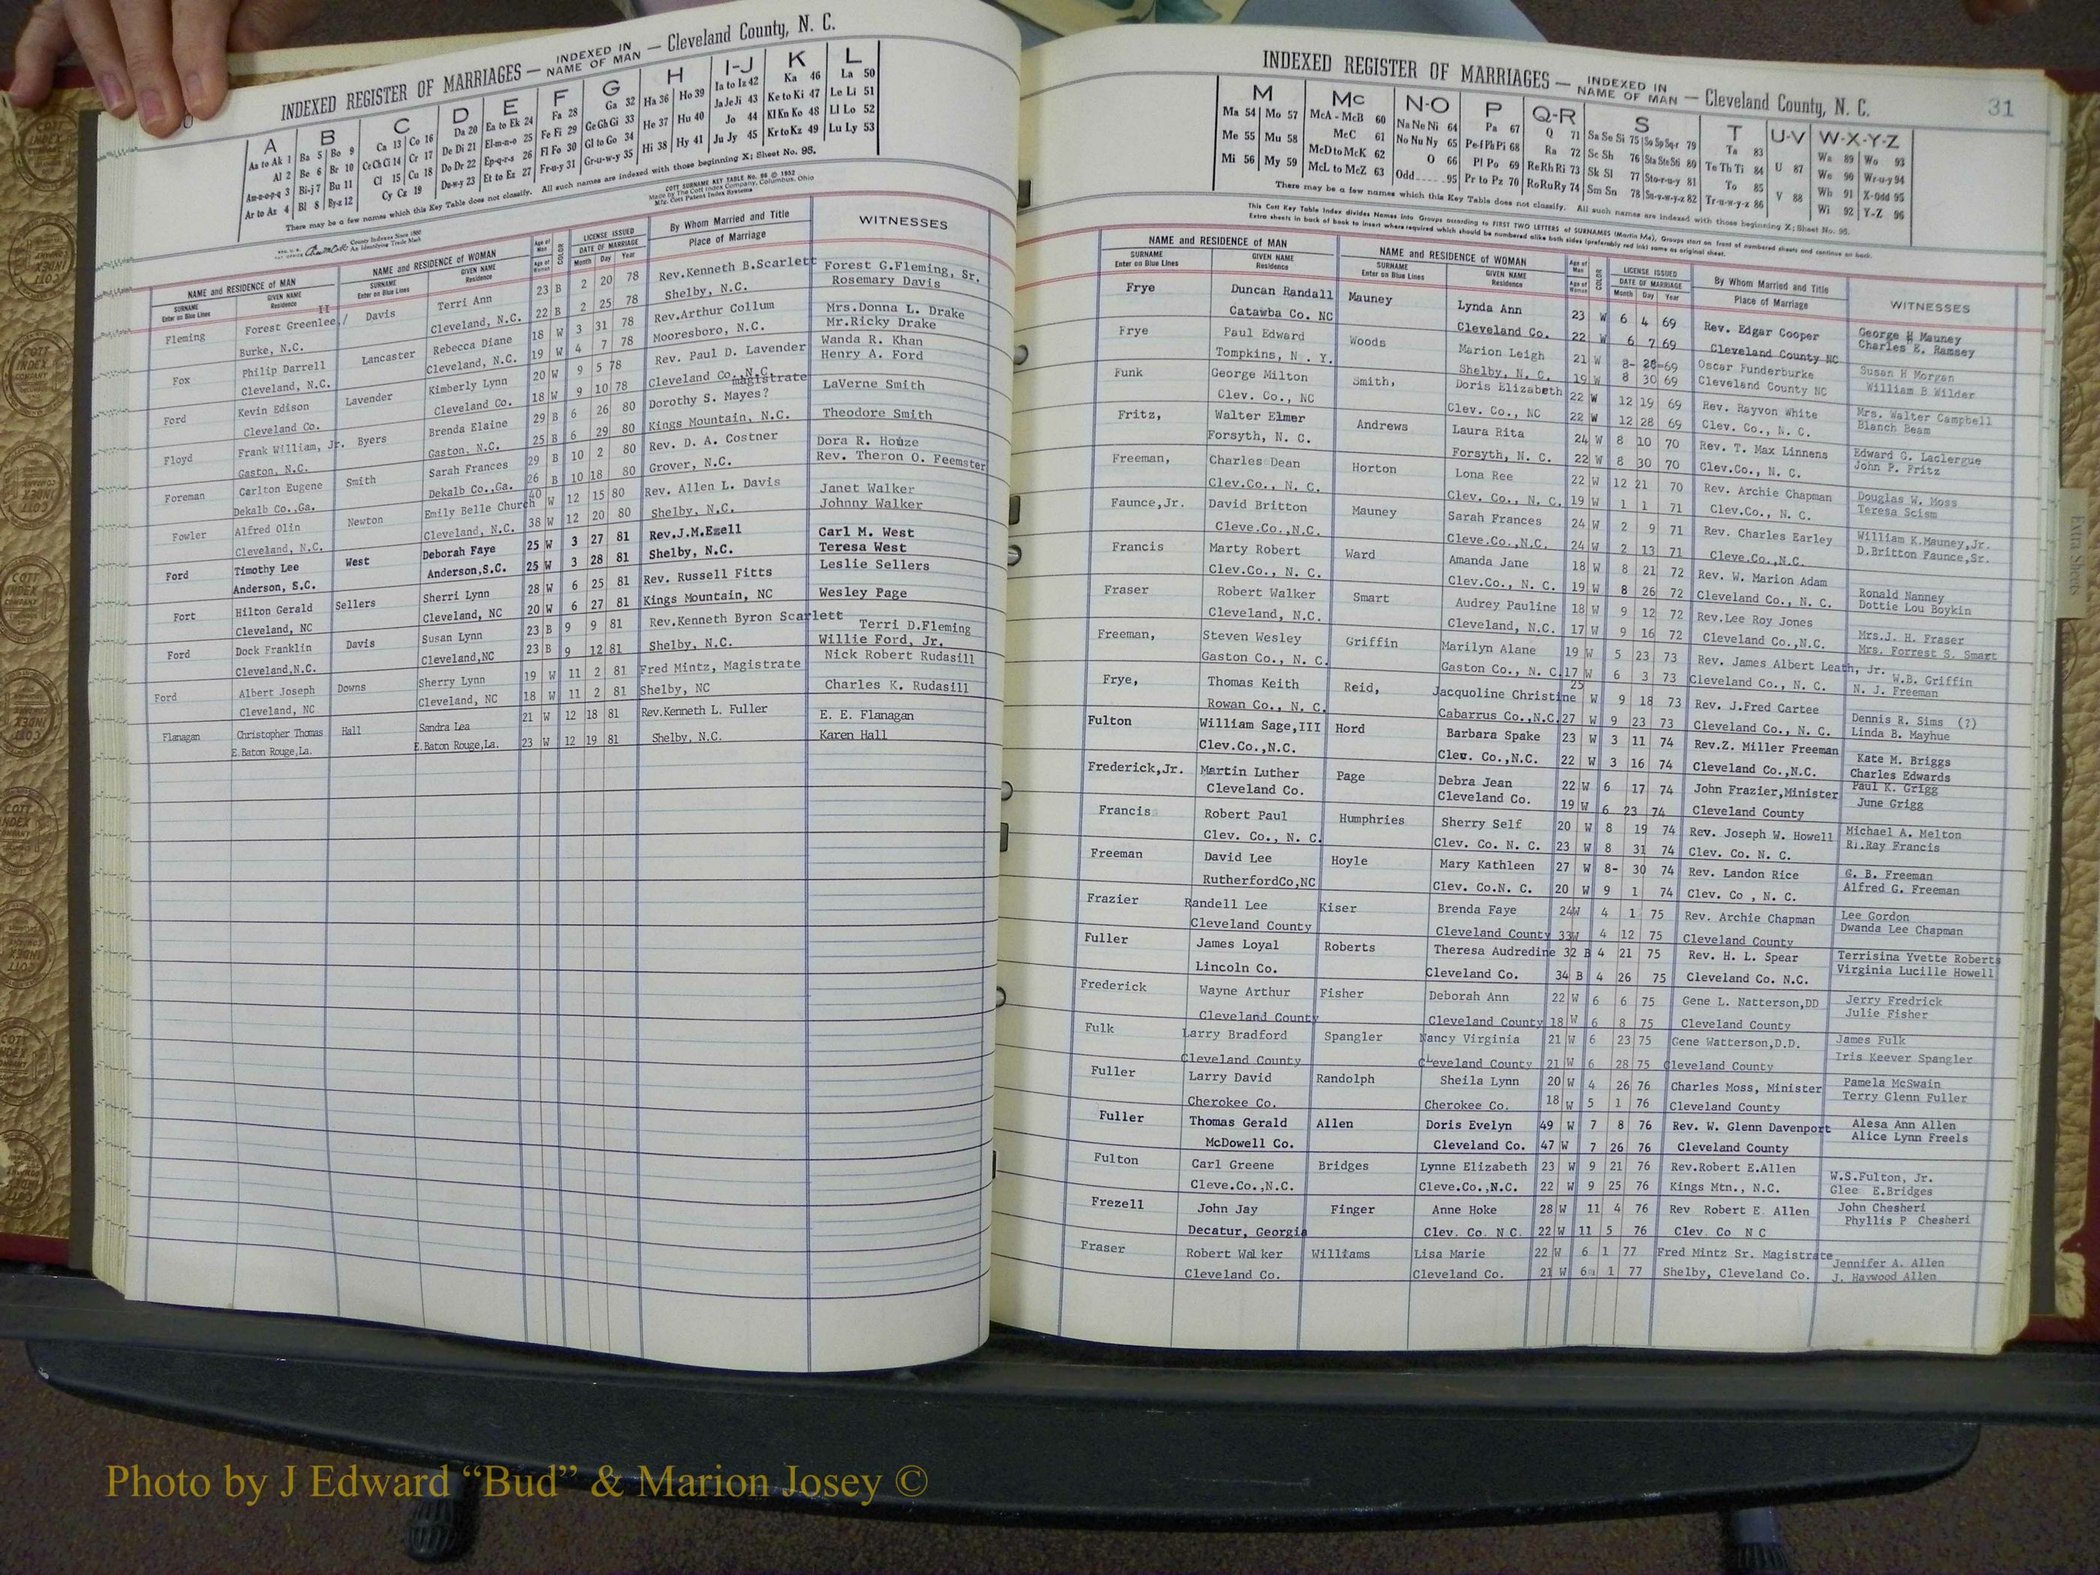 INDEXED REGISTER OF MARRIAGES — INDEXED IN NAME OF MAN — Cleveland County, N. C.
A B C D E F G H I-J K L
Aa to Ak 1 Ba 5 Bo 9 Ca 13 Co 16 Da 20 Ea to Ek 24 Fa 28 Ga 32 Ha 36 Ho 39 Ia to Iz 42 Ka 46 La 50
Al 2 Be 6 Br 10 Ce Ch Ci 14 Cr 17 De Di 21 El-m-n-o 25 Fe Fi 29 Ge Gh Gi 33 He 37 Hu 40 Ja Je Ji 43 Ke to Ki 47 Le Li 51
Am-n-o-p-q 3 Bi-j 7 Bu 11 Cl 15 Cu 18 Do Dr 22 Ep-q-r-s 26 Fl Fo 30 Gl to Go 34 Hi 38 Hy 41 Jo 44 Kl Kn Ko 48 Ll Lo 52
Ar to Az 4 Bl 8 By-z 12 Cy Cz 19 Du-w-y 23 Et to Ez 27 Fr-u-y 31 Gr-u-w-y 35 Ju Jy 45 Kr to Kz 49 Lu Ly 53
There may be a few names which this Key Table does not classify. All such names are indexed with those beginning X; Sheet No. 95.
COTT SURNAME KEY TABLE No. 96 © 1952
Made by The Cott Index Company, Columbus, Ohio
Mfg. Cott Patent Index Systems
County Indexes Since 1888
An Identifying Trade Mark
NAME and RESIDENCE of MAN NAME and RESIDENCE of WOMAN Age of Man Age of Woman COLOR LICENSE ISSUED DATE OF MARRIAGE By Whom Married and Title WITNESSES
SURNAME Enter on Blue Lines GIVEN NAME Residence SURNAME Enter on Blue Lines GIVEN NAME Residence Month Day Year Place of Marriage
Fleming Forest Greenlee, II Davis Terri Ann 23 B 2 20 78 Rev.Kenneth B.Scarlett Forest G.Fleming, Sr.
Burke, N.C. Cleveland, N.C. 22 B 2 25 78 Shelby, N.C. Rosemary Davis
Fox Philip Darrell Lancaster Rebecca Diane 18 W 3 31 78 Rev.Arthur Collum Mrs.Donna L. Drake
Cleveland, N.C. Cleveland, N.C. 19 W 4 7 78 Mooresboro, N.C. Mr.Ricky Drake
Ford Kevin Edison Lavender Kimberly Lynn 20 W 9 5 78 Rev. Paul D. Lavender Wanda R. Khan
Cleveland Co. Cleveland Co. 18 W 9 10 78 Cleveland Co., N.C. Henry A. Ford
Floyd Frank William, Jr. Byers Brenda Elaine 29 B 6 26 80 Dorothy S. Mayes? magistrate LaVerne Smith
Gaston, N.C. Gaston, N.C. 25 B 6 29 80 Kings Mountain, N.C. Theodore Smith
Foreman Carlton Eugene Smith Sarah Frances 29 B 10 2 80 Rev. D. A. Costner Dora R. Houze
Dekalb Co.,Ga. Dekalb Co.,Ga. 26 B 10 18 80 Grover, N.C. Rev. Theron O. Feemster
Fowler Alfred Olin Newton Emily Belle Church 40 W 12 15 80 Rev. Allen L. Davis Janet Walker
Cleveland, N.C. Cleveland, N.C. 38 W 12 20 80 Shelby, N.C. Johnny Walker
Ford Timothy Lee West Deborah Faye 25 W 3 27 81 Rev.J.M.Ezell Carl M. West
Anderson, S.C. Anderson,S.C. 25 W 3 28 81 Shelby, N.C. Teresa West
Fort Hilton Gerald Sellers Sherri Lynn 28 W 6 25 81 Rev. Russell Fitts Leslie Sellers
Cleveland, NC Cleveland, NC 20 W 6 27 81 Kings Mountain, NC Wesley Page
Ford Dock Franklin Davis Susan Lynn 23 B 9 9 81 Rev.Kenneth Byron Scarlett Terri D.Fleming
Cleveland,N.C. Cleveland,NC 23 B 9 12 81 Shelby, N.C. Willie Ford, Jr.
Ford Albert Joseph Downs Sherry Lynn 19 W 11 2 81 Fred Mintz, Magistrate Nick Robert Rudasill
Cleveland, NC Cleveland, NC 18 W 11 2 81 Shelby, NC Charles K. Rudasill
Flanagan Christopher Thomas Hall Sandra Lea 21 W 12 18 81 Rev.Kenneth L. Fuller E. E. Flanagan
E.Baton Rouge,La. E.Baton Rouge,La. 23 W 12 19 81 Shelby, N.C. Karen Hall
INDEXED REGISTER OF MARRIAGES — INDEXED IN NAME OF MAN — Cleveland County, N. C. 31
M Mc N-O P Q-R S T U-V W-X-Y-Z
Ma 54 Mo 57 McA - McB 60 Na Ne Ni 64 Pa 67 Q 71 Sa Se Si 75 So Sp Sq-r 79 Ta 83 Wa 89 Wo 93
Me 55 Mu 58 McC 61 No Nu Ny 65 Pe-f Ph Pi 68 Ra 72 Sc Sh 76 Sta Ste Sti 80 Te Th Ti 84 U 87 We 90 Wr-u-y 94
Mi 56 My 59 McD to McK 62 O 66 Pl Po 69 Re Rh Ri 73 Sk Sl 77 Sto-r-u-y 81 To 85 Wh 91 X-Odd 95
McL to McZ 63 Odd 95 Pr to Pz 70 Ro Ru Ry 74 Sm Sn 78 Su-v-w-y-z 82 Tr-u-w-y-z 86 V 88 Wi 92 Y-Z 96
There may be a few names which this Key Table does not classify. All such names are indexed with those beginning X; Sheet No. 95.
This Cott Key Table Index divides Names into Groups according to FIRST TWO LETTERS of SURNAMES (Martin Ma), Groups start on front of numbered sheets and continue on back.
Extra sheets in back of book to insert where required which should be numbered alike both sides (preferably red ink) same as original sheet.
NAME and RESIDENCE OF MAN NAME and RESIDENCE of WOMAN Age of Man Age of Woman COLOR LICENSE ISSUED DATE OF MARRIAGE By Whom Married and Title WITNESSES
SURNAME Enter on Blue Lines GIVEN NAME Residence SURNAME Enter on Blue Lines GIVEN NAME Residence Month Day Year Place of Marriage
Frye Duncan Randall Mauney Lynda Ann 23 W 6 4 69 Rev. Edgar Cooper George H Mauney
Catawba Co. NC Cleveland Co. 22 W 6 7 69 Cleveland County NC Charles E. Ramsey
Frye Paul Edward Woods Marion Leigh 21 W 8- 28-69 Oscar Funderburke Susan H Morgan
Tompkins, N. Y. Shelby, N. C. 19 W 8 30 69 Cleveland County NC William B Wilder
Funk George Milton Smith, Doris Elizabeth 22 W 12 19 69 Rev. Rayvon White Mrs. Walter Campbell
Clev. Co., NC Clev. Co., NC 22 W 12 28 69 Clev. Co., N. C. Blanch Beam
Fritz, Walter Elmer Andrews Laura Rita 24 W 8 10 70 Rev. T. Max Linnens Edward G. Laclergue
Forsyth, N. C. Forsyth, N. C. 22 W 8 30 70 Clev.Co., N. C. John P. Fritz
Freeman, Charles Dean Horton Lona Ree 22 W 12 21 70 Rev. Archie Chapman Douglas W. Moss
Clev.Co., N. C. Clev. Co., N. C. 19 W 1 1 71 Clev.Co., N. C. Teresa Scism
Faunce,Jr. David Britton Mauney Sarah Frances 24 W 2 9 71 Rev. Charles Earley William K.Mauney,Jr.
Cleve.Co.,N.C. Cleve.Co.,N.C. 24 W 2 13 71 Cleve.Co.,N.C. D.Britton Faunce,Sr.
Francis Marty Robert Ward Amanda Jane 18 W 8 21 72 Rev. W. Marion Adam Ronald Nanney
Clev.Co., N. C. Clev.Co., N. C. 19 W 8 26 72 Cleveland Co., N. C. Dottie Lou Boykin
Fraser Robert Walker Smart Audrey Pauline 18 W 9 12 72 Rev.Lee Roy Jones Mrs.J. H. Fraser
Cleveland, N.C. Cleveland, N.C. 17 W 9 16 72 Cleveland Co.,N.C. Mrs. Forrest S. Smart
Freeman, Steven Wesley Griffin Marilyn Alane 19 W 5 23 73 Rev. James Albert Leath, Jr. W.B. Griffin
Gaston Co., N. C. Gaston Co., N. C. 17 W 6 3 73 Cleveland Co., N. C. N. J. Freeman
Frye, Thomas Keith Reid, Jacquoline Christine 25 W 9 18 73 Rev. J.Fred Cartee Dennis R. Sims (?)
Rowan Co., N. C. Cabarrus Co.,N.C. 27 W 9 23 73 Cleveland Co., N. C. Linda B. Mayhue
Fulton William Sage,III Hord Barbara Spake 23 W 3 11 74 Rev.Z. Miller Freeman Kate M. Briggs
Clev.Co.,N.C. Clev. Co.,N.C. 22 W 3 16 74 Cleveland Co.,N.C. Charles Edwards
Frederick,Jr. Martin Luther Page Debra Jean 22 W 6 17 74 John Frazier,Minister Paul K. Grigg
Cleveland Co. Cleveland Co. 19 W 6 23 74 Cleveland County June Grigg
Francis Robert Paul Humphries Sherry Self 20 W 8 19 74 Rev. Joseph W. Howell Michael A. Melton
Clev. Co., N. C. Clev. Co. N. C. 23 W 8 31 74 Clev. Co. N. C. R..Ray Francis
Freeman David Lee Hoyle Mary Kathleen 27 W 8- 30 74 Rev. Landon Rice G. B. Freeman
RutherfordCo,NC Clev. Co.N. C. 20 W 9 1 74 Clev. Co , N. C. Alfred G. Freeman
Frazier Randell Lee Kiser Brenda Faye 24W 4 1 75 Rev. Archie Chapman Lee Gordon
Cleveland County Cleveland County 33W 4 12 75 Cleveland County Dwanda Lee Chapman
Fuller James Loyal Roberts Theresa Audredine 32 B 4 21 75 Rev. H. L. Spear Terrisina Yvette Roberts
Lincoln Co. Cleveland Co. 34 B 4 26 75 Cleveland Co. N.C. Virginia Lucille Howell
Frederick Wayne Arthur Fisher Deborah Ann 22 W 6 6 75 Gene L. Natterson,DD Jerry Fredrick
Cleveland County Cleveland County 18 W 6 8 75 Cleveland County Julie Fisher
Fulk Larry Bradford Spangler Nancy Virginia 21 W 6 23 75 Gene Watterson,D.D. James Fulk
Cleveland County Cleveland County 21 W 6 28 75 Cleveland County Iris Keever Spangler
Fuller Larry David Randolph Sheila Lynn 20 W 4 26 76 Charles Moss, Minister Pamela McSwain
Cherokee Co. Cherokee Co. 18 W 5 1 76 Cleveland County Terry Glenn Fuller
Fuller Thomas Gerald Allen Doris Evelyn 49 W 7 8 76 Rev. W. Glenn Davenport Alesa Ann Allen
McDowell Co. Cleveland Co. 47 W 7 26 76 Cleveland County Alice Lynn Freels
Fulton Carl Greene Bridges Lynne Elizabeth 23 W 9 21 76 Rev.Robert E.Allen W.S.Fulton, Jr.
Cleve.Co.,N.C. Cleve.Co.,N.C. 22 W 9 25 76 Kings Mtn., N.C. Glee E.Bridges
Frezell John Jay Finger Anne Hoke 28 W 11 4 76 Rev Robert E. Allen John Chesheri
Decatur, Georgia Clev. Co. N C. 22 W 11 5 76 Clev. Co N C Phyllis P Chesheri
Fraser Robert Walker Williams Lisa Marie 22 W 6 1 77 Fred Mintz Sr. Magistrate Jennifer A. Allen
Cleveland Co. Cleveland Co. 21 W 6 1 77 Shelby, Cleveland Co. J. Haywood Allen
Extra Sheets
Photo by J Edward “Bud” & Marion Josey ©